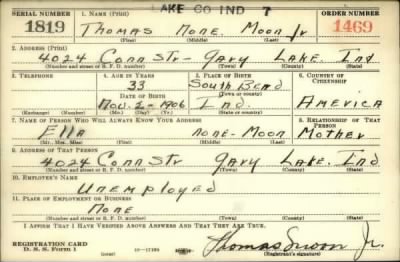 LAKE CO IND 7
SERIAL NUMBER 1. NAME (Print) ORDER NUMBER
1819 Thomas None. Moon Jr 1469
(First) (Middle) (Last)
2. ADDRESS (Print)
4024 Conn Str - Gary Lake. Ind
(Number and street or R. F. D. number) (Town) (County) (State)
3. TELEPHONE 4. AGE IN YEARS 5. PLACE OF BIRTH 6. COUNTRY OF CITIZENSHIP
33 South Bend
DATE OF BIRTH (Town or county)
Nov. 2 - 1906 Ind. America
(Exchange) (Number) (Mo.) (Day) (Yr.) (State or country)
7. NAME OF PERSON WHO WILL ALWAYS KNOW YOUR ADDRESS 8. RELATIONSHIP OF THAT PERSON
Ella none - Moon Mother
(Mr., Mrs., Miss) (First) (Middle) (Last)
9. ADDRESS OF THAT PERSON
4024 Conn Str Gary Lake. Ind
(Number and street or R. F. D. number) (Town) (County) (State)
10. EMPLOYER'S NAME
Unemployed
11. PLACE OF EMPLOYMENT OR BUSINESS
None
(Number and street or R. F. D. number) (Town) (County) (State)
I AFFIRM THAT I HAVE VERIFIED ABOVE ANSWERS AND THAT THEY ARE TRUE.
REGISTRATION CARD
D. S. S. Form 1 Thomas Moon Jr.
(Registrant's signature)